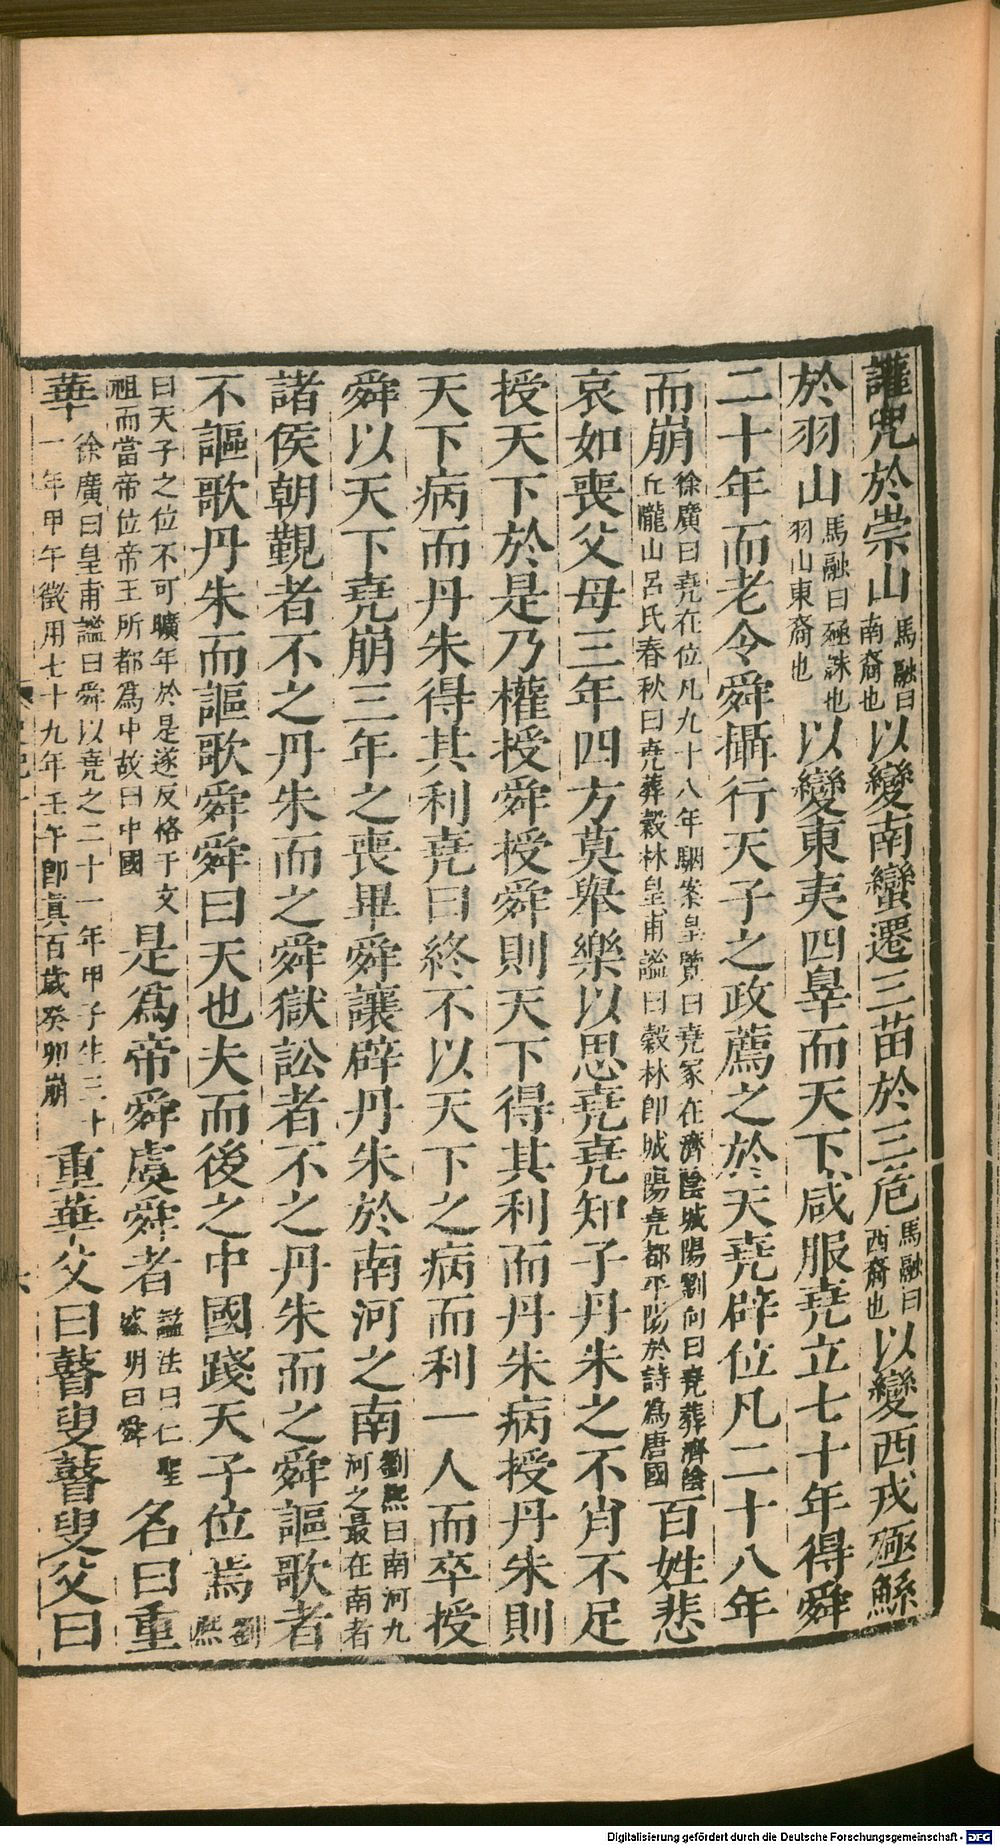 讙兜於崇山馬融曰南裔也以變南蠻遷三苗於三危馬融曰西裔也以變西戎殛鯀
於羽山馬融曰殛誅也羽山東裔也以變東夷四辠而天下咸服堯立七十年得舜
二十年而老令舜攝行天子之政薦之於天堯辟位凡二十八年
而崩徐廣曰堯在位凡九十八年駰案皇覽曰堯冢在濟陰城陽劉向曰堯葬濟陰丘隴山呂氏春秋曰堯葬穀林皇甫謐曰穀林即城陽堯都平陽於詩爲唐國百姓悲
哀如喪父母三年四方莫舉樂以思堯堯知子丹朱之不肖不足
授天下於是乃權授舜授舜則天下得其利而丹朱病授丹朱則
天下病而丹朱得其利堯曰終不以天下之病而利一人而卒授
舜以天下堯崩三年之喪畢舜讓辟丹朱於南河之南劉熙曰南河九河之最在南者
諸侯朝覲者不之丹朱而之舜獄訟者不之丹朱而之舜謳歌者
不謳歌丹朱而謳歌舜舜曰天也夫而後之中國踐天子位焉劉熙
曰天子之位不可曠年於是遂反格于文祖而當帝位帝王所都爲中故曰中國是爲帝舜虞舜者謚法曰仁聖盛明曰舜名曰重
華徐廣曰皇甫謐曰舜以堯之二十一年甲子生三十一年甲午徵用七十九年壬午即眞百歲癸卯崩重華父曰瞽叟瞽叟父曰
Digitalisierung gefördert durch die Deutsche Forschungsgemeinschaft - DFG